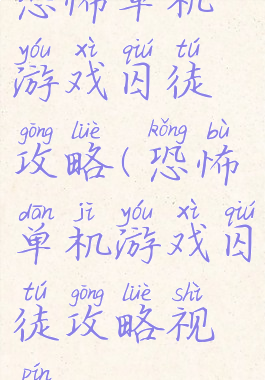 恐怖单机
yóu xì qiú tú
游戏囚徒
gōng lüè kǒng bù
攻略(恐怖
dān jī yóu xì qiú
单机游戏囚
tú gōng lüè shì
徒攻略视
pín